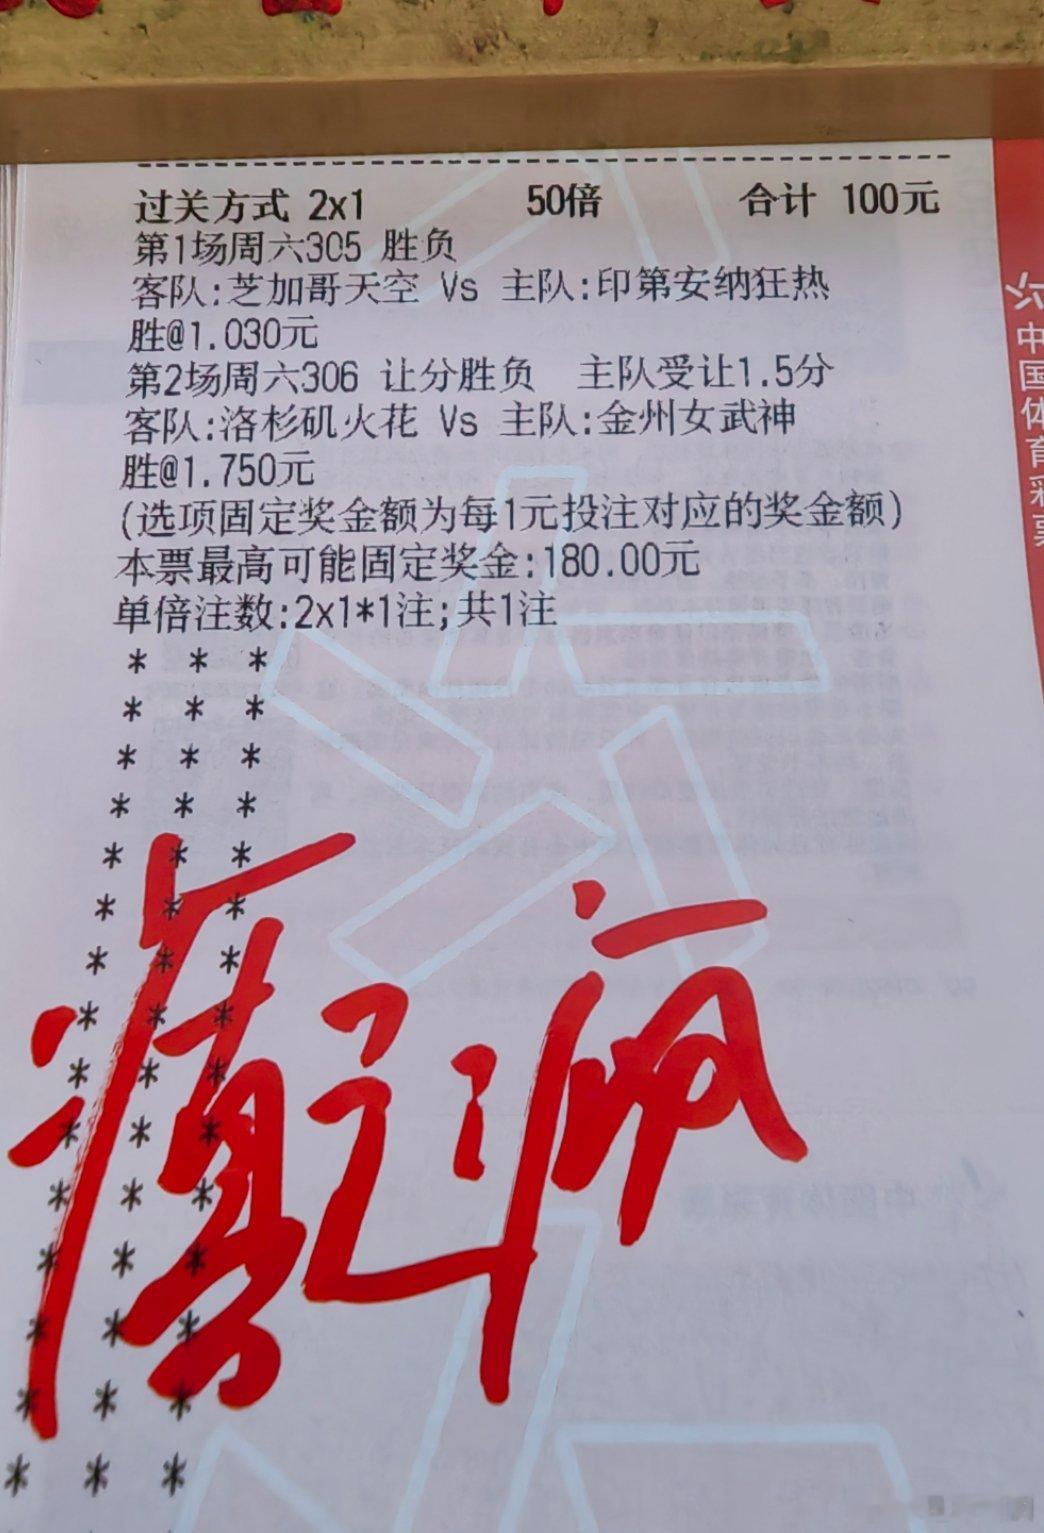 过关方式 2x1 50倍 合计 100元
第1场周六305 胜负
客队:芝加哥天空 Vs 主队:印第安纳狂热
胜@1.030元
第2场周六306 让分胜负 主队受让1.5分
客队:洛杉矶火花 Vs 主队:金州女武神
胜@1.750元
(选项固定奖金额为每1元投注对应的奖金额)
本票最高可能固定奖金:180.00元
单倍注数:2x1*1注;共1注
* * *
* * *
* * *
* * *
* * *
* * *
* * *
* * *
* * *
* * *
* * *
* * *
* * *
* * *
* * *
中国体育彩票